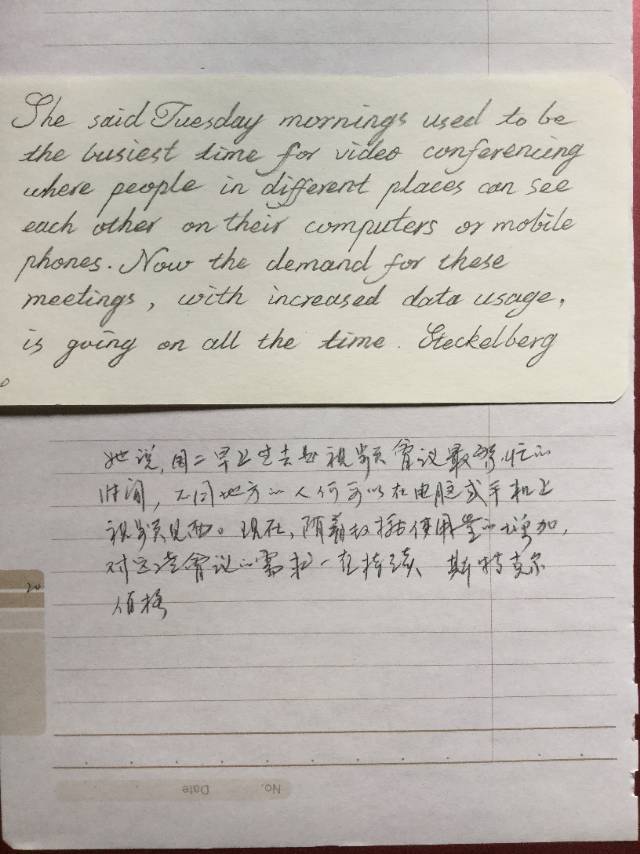 She said Tuesday mornings used to be
the busiest time for video conferencing
where people in different places can see
each other on their computers or mobile
phones. Now the demand for these
meetings, with increased data usage,
is going on all the time. Steckelberg
她说,周二早上过去是视频会议最繁忙的
时间,不同地方的人们可以在电脑或手机上
视频见面。现在,随着数据使用量的增加,
对这些会议的需求一直持续、斯特克尔
伯格
20
No. Date